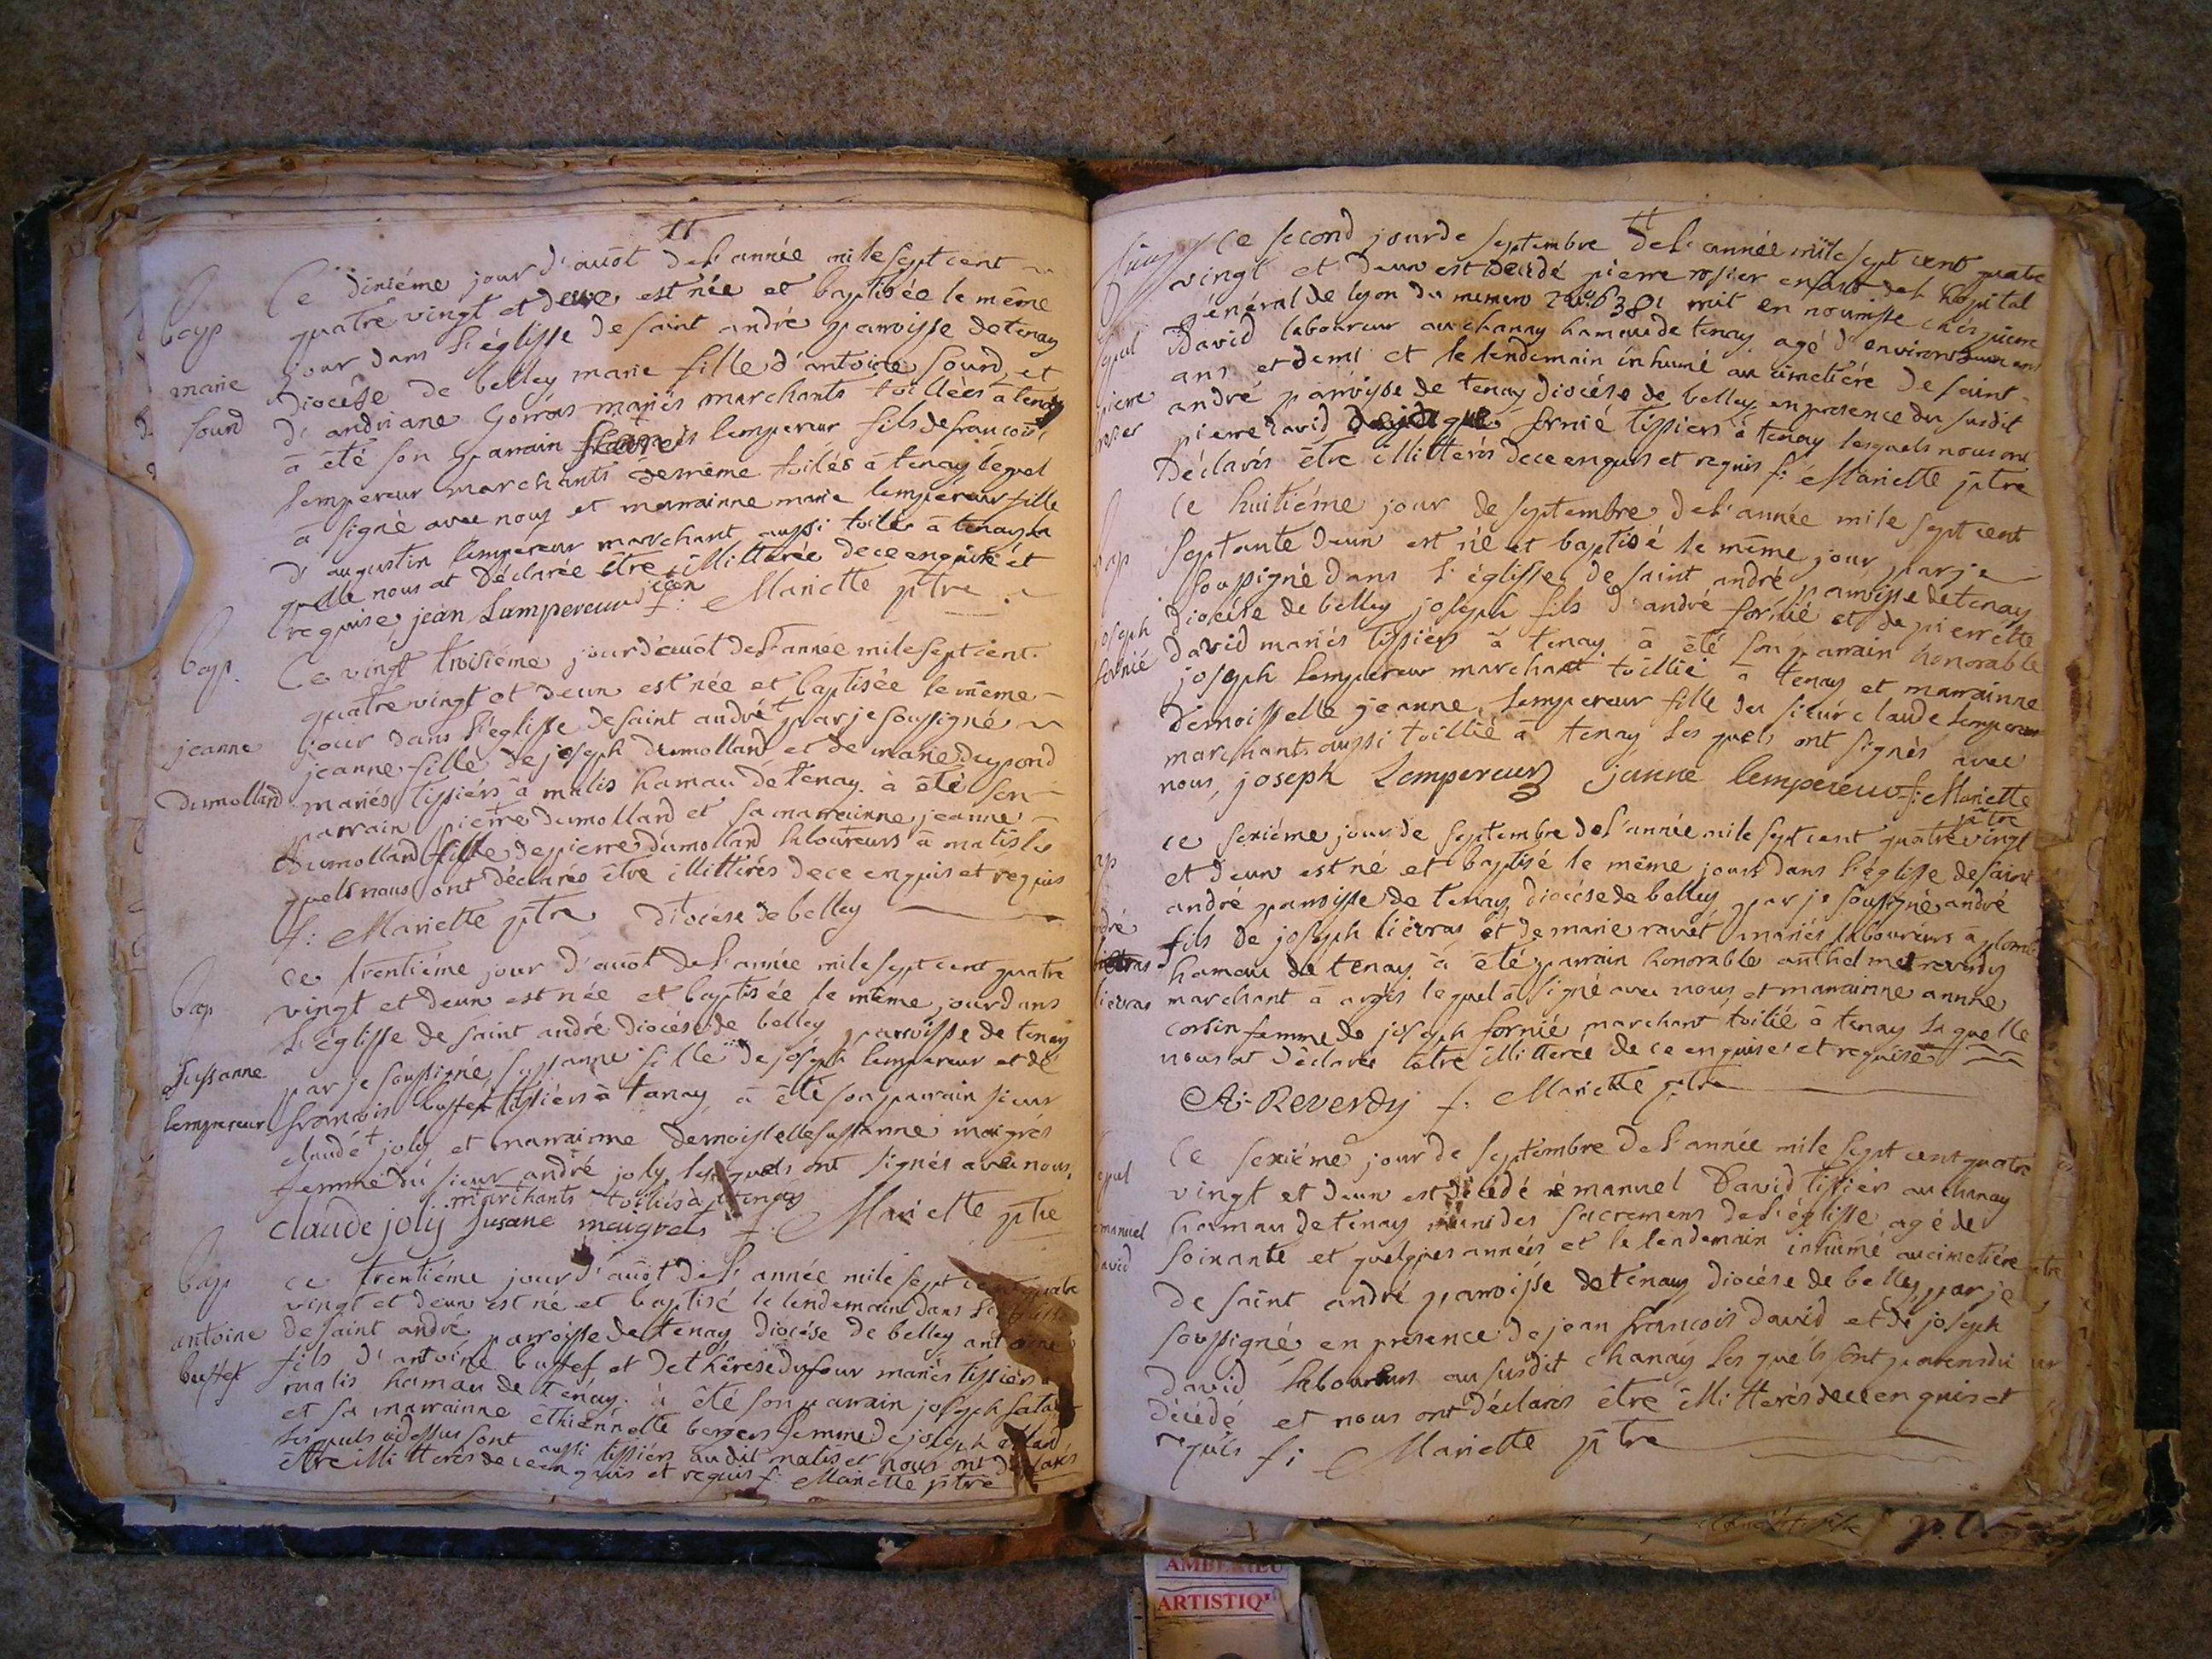 bap
marie
sourd
Ce dixiéme jour d'auôt de l'année mile sept cent
quatre vingt et deux est née et baptisée le même
jour dans l'église de saint andré parroisse de tenay
diocése de belley marie fille d'antoine sourd et
d'andriane goiras mariés marchants toilliés à tenay
à été son parrain lempereur fils de francois
lempereur marchants de même toiliés à tenay lequel
à signé avec nous et marrainne marie lempereur fille
d'augustin lempereur marchant aussi toilié à tenay la
quelle nous at déclarée être illitterée de ce enquise et
requise jean Lampereur jean f: Mariette ptre
bap.
jeanne
dumolland
Ce vingt troisiéme jour d'auôt de l'année mile sept cent
quatre vingt et deux est née et baptisée le même
jour dans l'églisse de saint andré par je soussigné
jeanne fille de joseph dumolland et de marie dupond
mariés tissiérs à malis hamau de tenay. à été son
parrain pierre dumolland et sa marrainne jeanne
dumolland fille de pierre dumolland laboureurs à malis les
quels nous ont déclarés être illittérés de ce enquis et requis
f: Mariette ptre diocése de belley
bap
sussanne
lempereur
ce trentiéme jour d'auôt de l'année mile sept cent quatre
vingt et deux est née et baptisée le même jour dans
l'églisse de saint andré diocése de belley parroisse de tenay
par je soussigné sussanne fille de joseph lempereur et de
francois buffet tissiérs à tenay à été son parrain sieur
claude joly et marrainne demoiselle sussanne maigrés
femme du sieur andré joly lesquels ont signés avec nous,
marchants toiliés à tenay
claude joly Susane maigrets f: Mariette ptre
bap
antoine
buffet
ce trentiéme jour d'auôt de l'année mile sept cent quatre
vingt et deux est né et baptisé le lendemain dans l'églisse
de saint andré parroisse de tenay diocése de belley antoine
fils d'antoine buffet et de thérese dufour mariés tissiérs à
malis hamau de tenay. à été son parrain joseph
et sa marrainne êthiennette bergers femme de joseph
lesquels adessus sont aussi tissiérs au dit malis et nous ont déclarés
être illitterés de ce enquis et requis f: Mariette ptre
sepul
pierre
rosier
Ce second jour de septembre de l'année mile sept cent quatre
vingt et deux est décédé pierre rosier enfant de l'hôpital
général de lyon du numero mit en nourisse chés pierre
david laboureur au chanay hamau de tenay agé d'environ deux ans
ans et demi et le lendemain inhumé au cimetiére de saint
andré parroisse de tenay diocése de belley en presence du susdit
pierre david fornié tissiers à tenay lesquels nous ont
déclarés être illitterés de ce enquis et requis f: Mariette ptre
bap
joseph
fornié
Ce huitiéme jour de septembre de l'année mile sept cent
septante deux est né et baptisé le même jour par je
soussigné dans l'églisse de saint andré parroisse de tenay
diocése de belley joseph fils d'andré fornié et de pierrette
david mariés tissiérs à tenay. à été son parrain honorable
joseph lempereur marchant toillié à tenay et marrainne
démoisselle jeanne lempereur fille du sieur claude lempereur
marchants aussi toillié à tenay les quels ont signés avec
nous, joseph Lempereur janne lempereur f: Mariette
ptre
bap
andré
liévras
ce sexiéme jour de septembre de l'année mile sept cent quatre vingt
et deux est né et baptisé le même jour dans l'églisse de saint
andré parroisse de tenay diocése de belley par je soussigné andré
fils de joseph liévras et de marie ravét mariés laboureurs à
hamau de tenay. à été parrain honorable anthelme reverdy
marchant à argis lequel à signé avec nous et marrainne annne
corsin femme de joseph fornié marchant toilié à tenay laquelle
nous at déclarée être illitterée de ce enquise et requise
A: Reverdy f: Mariette ptre
sepul
emanuel
david
Ce sexiéme jour de septembre de l'année mile sept cent quatre
vingt et deux est décédé emanuel David tissiérs au chanay
hamau de tenay munides sacremens de l'églisse agé de
soixante et quelques années et le lendemain inhumé au cimetiére
de saint andré parroisse de tenay diocése de belley par je
soussigné en présence de jean francois david et de joseph
david laboureurs au susdit chanay les quéls sont parens du
décédé et nous ont déclarés être illitterés de ce enquis et
requis f: Mariette ptre
AMBERIEU
ARTISTIQU